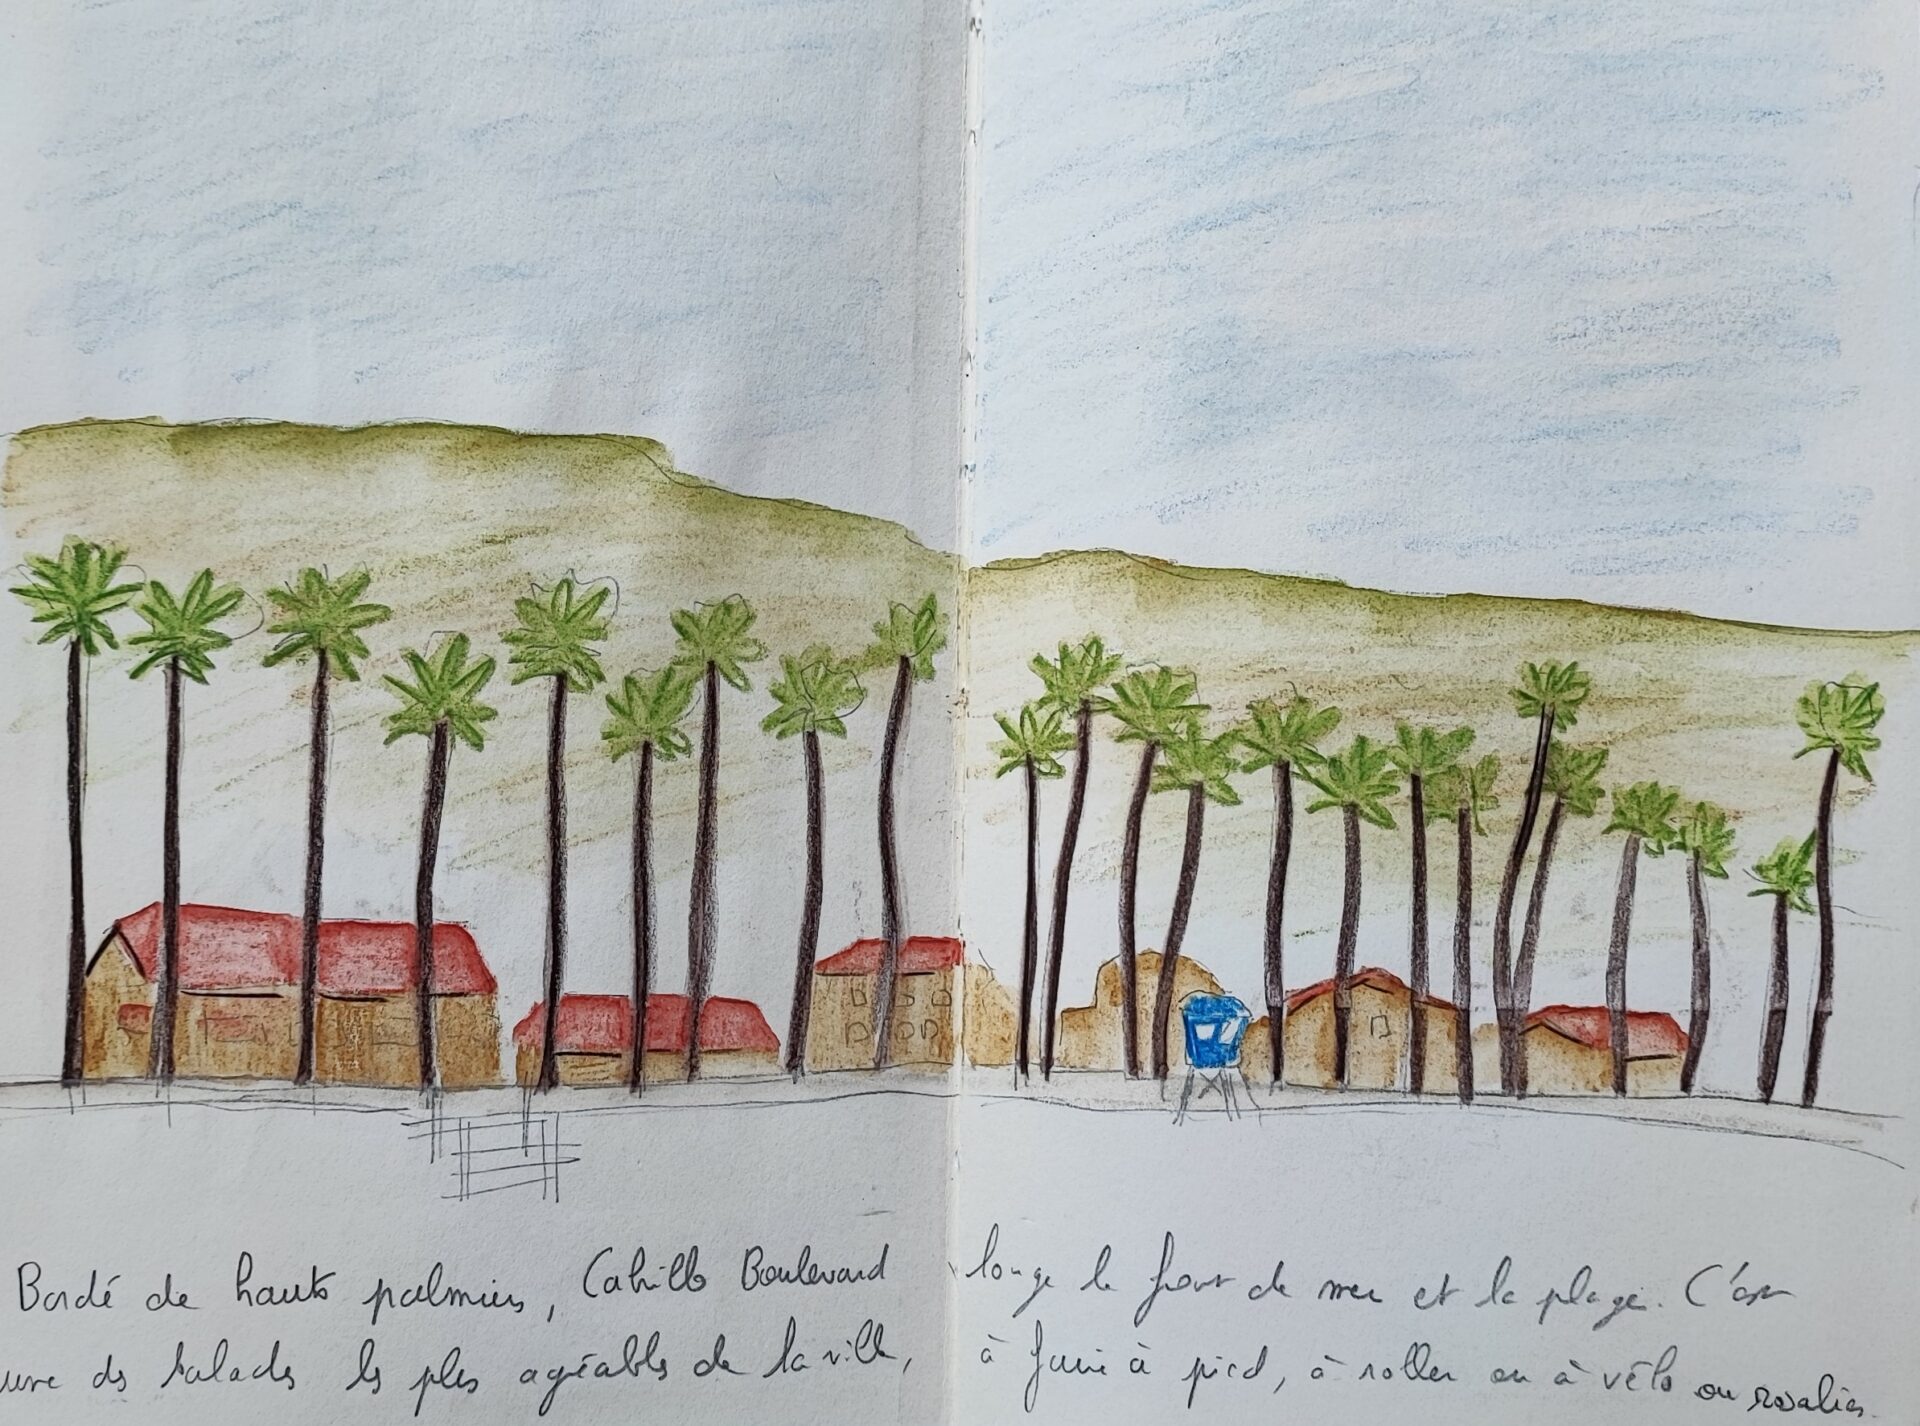 Bordé de hauts palmiers, Cabrillo Boulevard longe le front de mer et la plage. C'est
une des balades les plus agréables de la ville, à faire à pied, à roller ou à vélo ou rosalies.